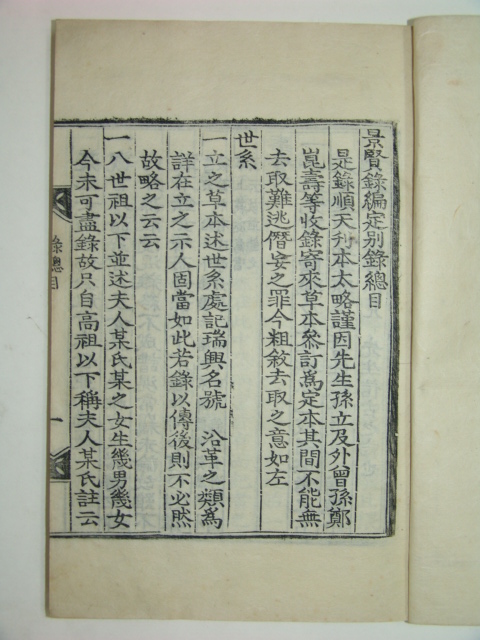 景賢錄編定别錄總目
是錄順天刋本太略謹因先生孫立及外曾孫鄭
崑壽等收錄寄來草本參訂爲定本其間不能無
去取難逃僭妄之罪今粗敘去取之意如左
世系
一立之草本述世系處記瑞興名號 沿革之類爲
詳在立之示人固當如此若錄以傳後則不必然
故略之云云
一八世祖以下並述夫人某氏某之女生幾男幾女
今未可盡錄故只自高祖以下稱夫人某氏註云
錄總目
一